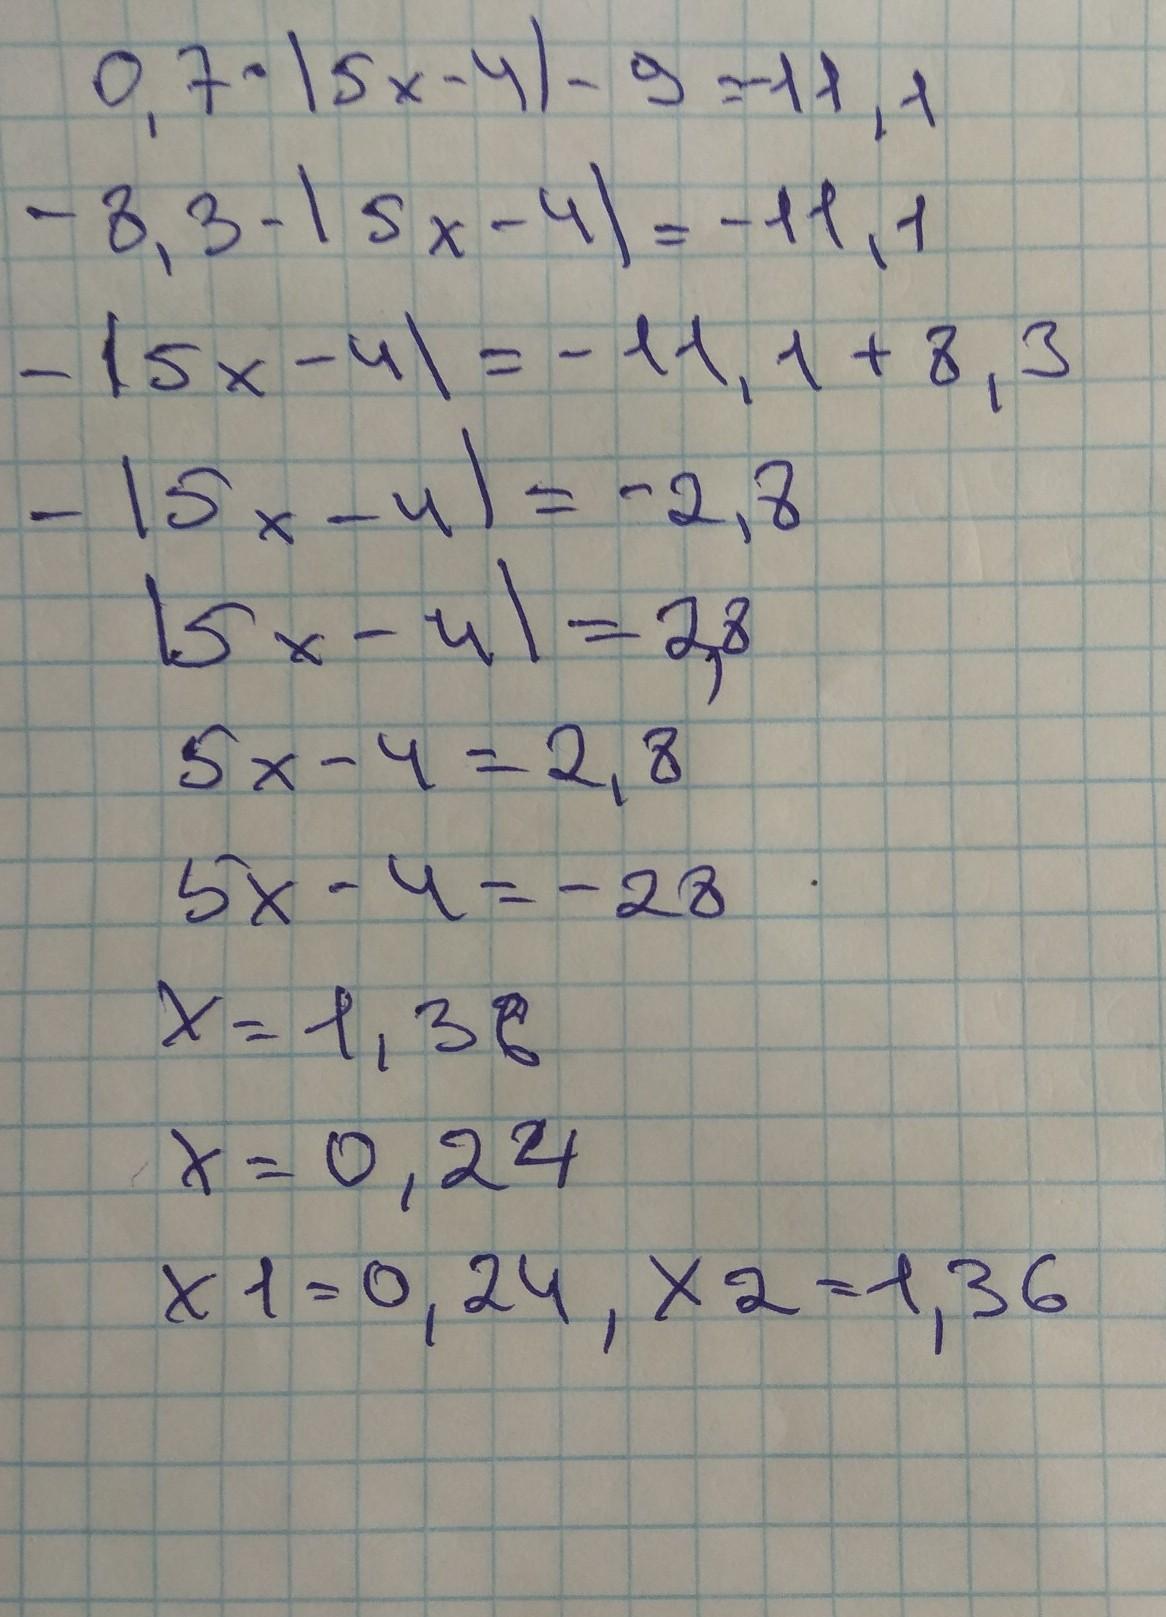 0,7·|5x-4|-9=-11,1
-8,3-|5x-4|=-11,1
-|5x-4|=-11,1+8,3
-|5x-4|=-2,8
|5x-4|=2,8
5x-4=2,8
5x-4=-28
x=1,36
x=0,24
x1=0,24, x2=1,36